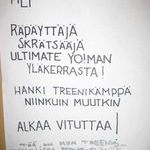 HEI
RÄPÄYTTÄJÄ
SKRÄTSÄÄJÄ
ULTIMATE YO!MAN
YLÄKERRASTA!
HANKI TREENIKÄMPPÄ
NIINKUIN MUUTKIN
ALKAA VITUTTAA!